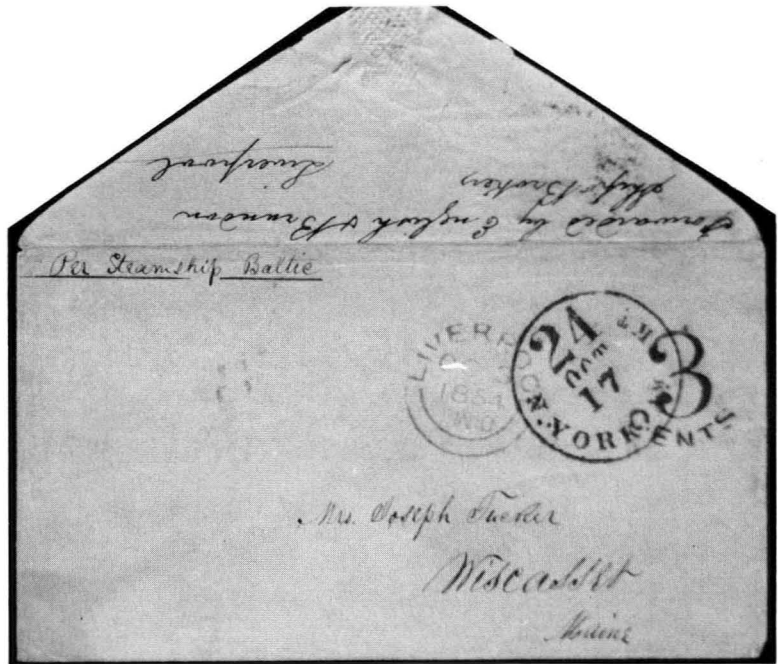 Forwarded by English & Brandon
Ship Brokers
Liverpool
Per Steamship Baltic
LIVERPOOL
1854
24
OCT
17
N. YORK
3
CENTS
Mrs. Joseph Tucker
Wiscasset
Maine